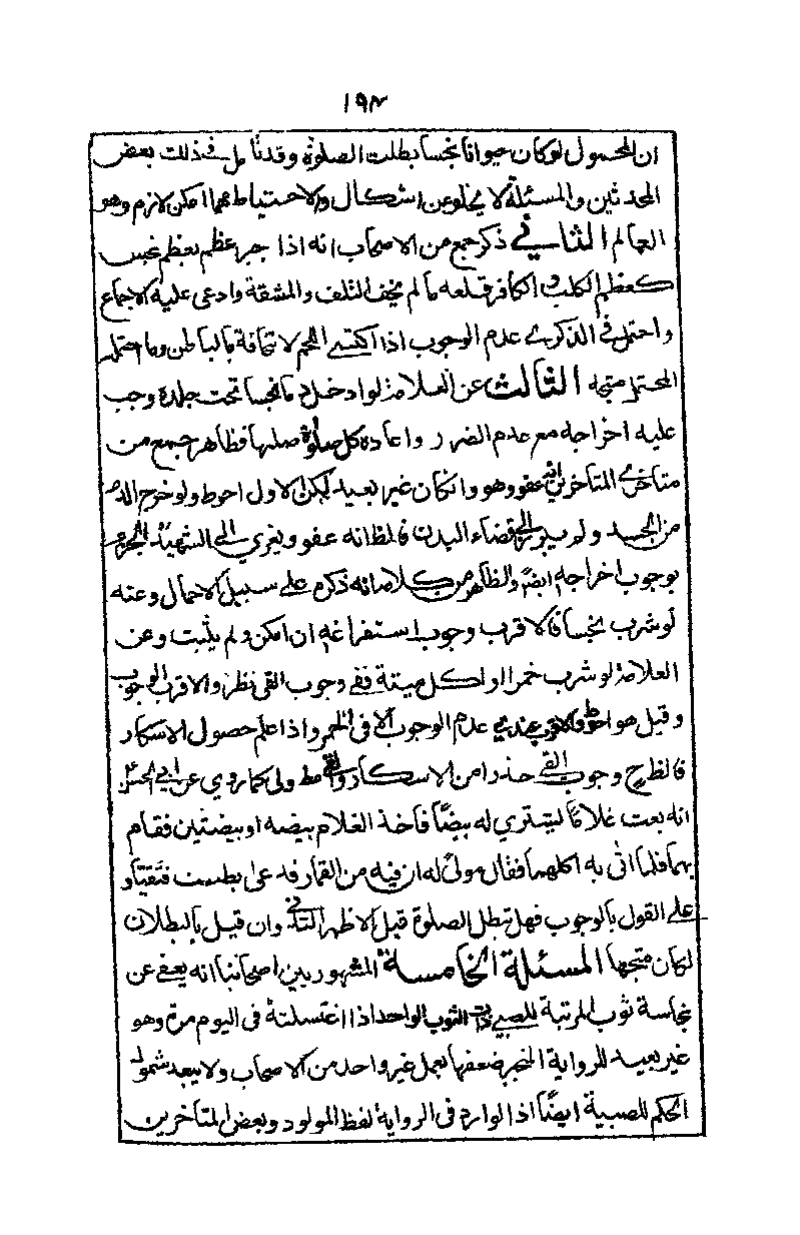 ١٩٨
ان المحمول لوكان حيوانا نجسا بطلت الصلوة وقد تأمل فى ذلك بعض
المحدثين والمسئلة لا يخلو عن اشكال والاحتياط مهما امكن لازم وهو
العالم الثاني ذكر جمع من الاصحاب انه اذا جبر عظم بعظم نجس
كعظم الكلب والكافر قلعه ما لم يخف التلف والمشقة وادعى عليه الاجماع
واحتمل في الذكرى عدم الوجوب اذا اكتسى اللحم لالتحاقه بالباطن وما احتمله
المحتمل متجه الثالث عن العلامة لو ادخل دما نجسا تحت جلده وجب
عليه اخراجه مع عدم الضرر واعاده كل صلوة صلها فظاهر جمع من
متاخرى المتاخرين انه عفو وهو وانكان غير بعيد لكن الاول احوط ولو خرج الدم
من الجسد ولم يبرز الى فضاء البدن فالظ انه عفو ويعزي الى الشهيد الجزم
بوجوب اخراجه ايضا والظاهر من كلامه انه ذكره على سبيل الاحتمال وعنه
لو شرب نجسا فالاقرب وجوب استفراغه ان امكن ولم يثبت وعن
العلامة لو شرب خمرا او اكل ميتة ففى وجوب القى نظر والاقرب الوجوب
وقيل هو احوط والاقوى عندي عدم الوجوب الا فى الخمر واذا علم حصول الاسكار
فالظ ح وجوب القى حذرا من الاسكار والقى ولى كما روي عن ابى الحسن
انه بعث غلاما ليشتري له بيضا فاخذ الغلام بيضه او بيضتين فقام
بهما فلما اتى به اكلهما فقال مولى له ان فيه من القمار فدعى بطست فتقيأ و
على القول بالوجوب فهل تبطل الصلوة قبل الاظهر الثاني وان قيل بالبطلان
لكان متجها المسئلة الخامسة المشهور بين اصحابنا انه يعفى عن
نجاسة ثوب المربية للصبي ذات الثوب الواحد اذا اغتسلته فى اليوم مرة وهو
غير بعيد للرواية المنجبر ضعفها بعمل غير واحد من الاصحاب ولا يبعد شمول
الحكم للصبية ايضا اذ الوارد فى الرواية لفظ المولود وبعض المتاخرين